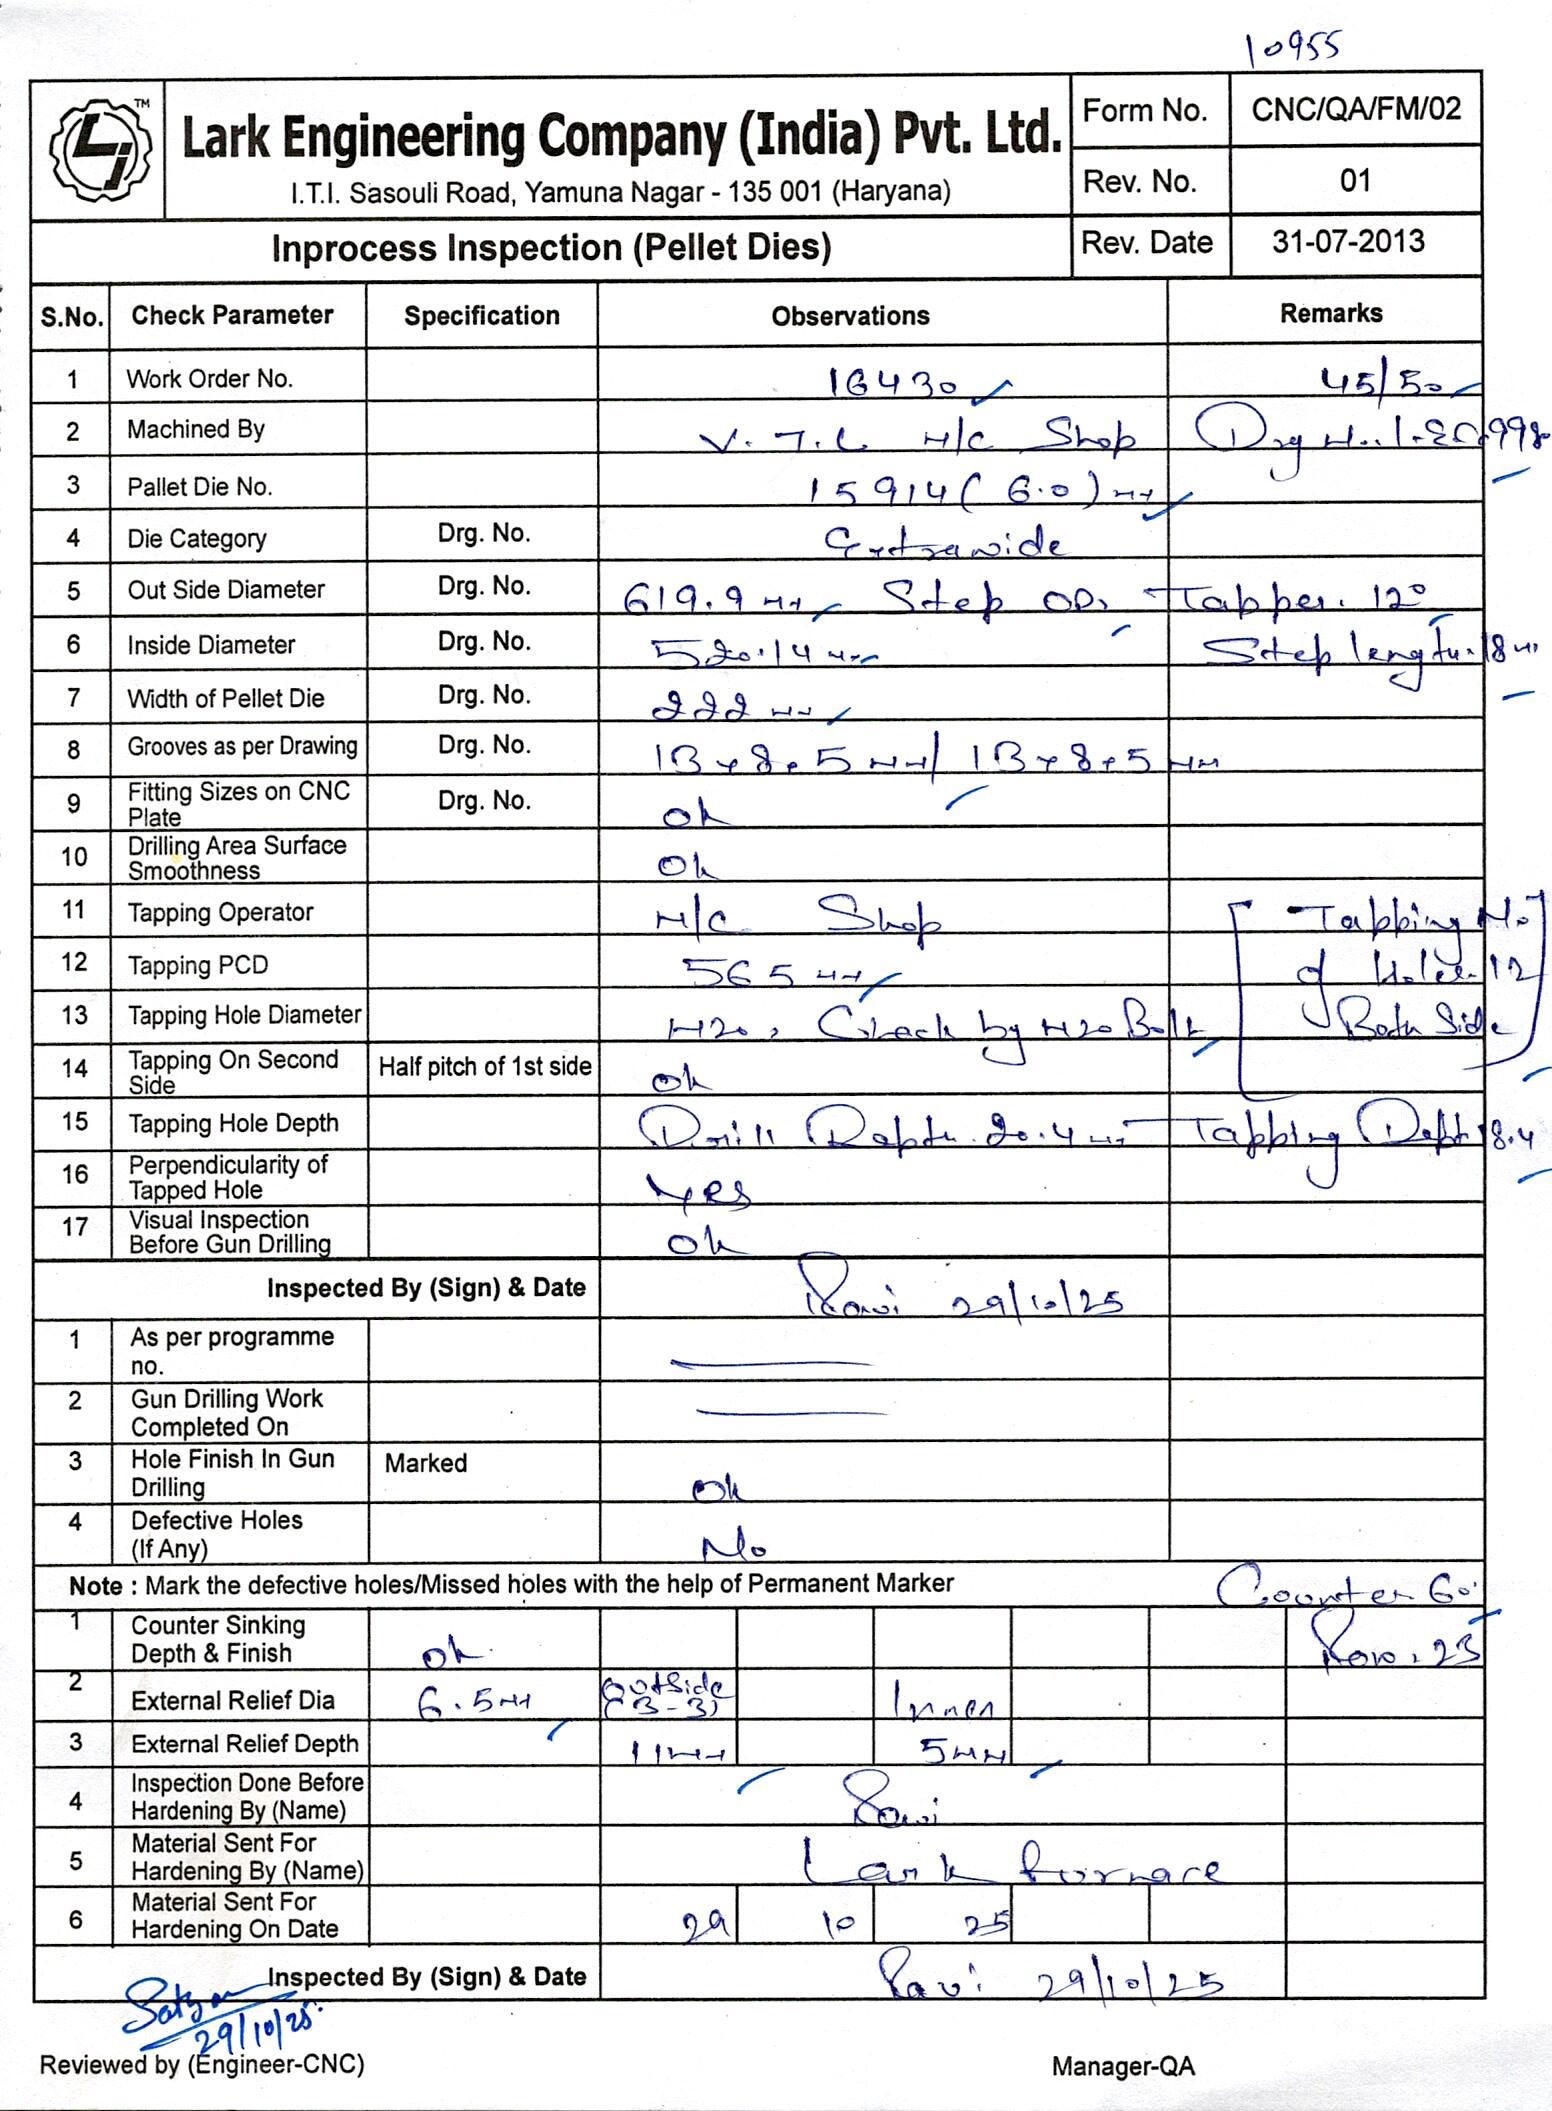 10955
TM
Lark Engineering Company (India) Pvt. Ltd.
I.T.I. Sasouli Road, Yamuna Nagar - 135 001 (Haryana)
Form No. CNC/QA/FM/02
Rev. No. 01
Inprocess Inspection (Pellet Dies) Rev. Date 31-07-2013
S.No. Check Parameter Specification Observations Remarks
1 Work Order No. 16430 45/50
2 Machined By V.T.L M/C Shop Drg No.
3 Pallet Die No. 15914 (6.0) mm
4 Die Category Drg. No. Extrawide
5 Out Side Diameter Drg. No. 619.9 mm Step OD, Tapper. 12°
6 Inside Diameter Drg. No. 520.14 mm Step length. 18 mm
7 Width of Pellet Die Drg. No. 222 mm
8 Grooves as per Drawing Drg. No. 13 x 8.5 mm / 13 x 8.5 mm
9 Fitting Sizes on CNC Plate Drg. No. ok
10 Drilling Area Surface Smoothness ok
11 Tapping Operator M/C Shop Tapping No.
12 Tapping PCD 565 mm of Holes. 12
13 Tapping Hole Diameter M20, Check by M20 Bolt Both Side
14 Tapping On Second Side Half pitch of 1st side ok
15 Tapping Hole Depth Drill Depth. 20.4 mm Tapping Depth 18.4
16 Perpendicularity of Tapped Hole Yes
17 Visual Inspection Before Gun Drilling ok
Inspected By (Sign) & Date Ravi 29/10/25
1 As per programme no.
2 Gun Drilling Work Completed On
3 Hole Finish In Gun Drilling Marked ok
4 Defective Holes (If Any) No
Note : Mark the defective holes/Missed holes with the help of Permanent Marker Counter 60°
1 Counter Sinking Depth & Finish ok 23
2 External Relief Dia 6.5 mm Outside (3-3) Inner
3 External Relief Depth 11 mm 5 mm
4 Inspection Done Before Hardening By (Name) Ravi
5 Material Sent For Hardening By (Name) Lark furnace
6 Material Sent For Hardening On Date 29 10 25
Inspected By (Sign) & Date Ravi 29/10/25
29/10/25
Reviewed by (Engineer-CNC) Manager-QA